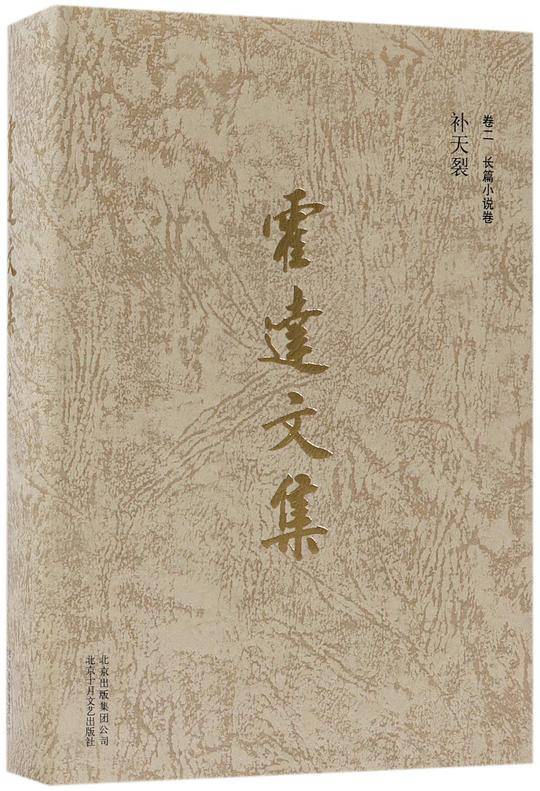 卷二 长篇小说卷
补天裂
霍達文集
北京出版集团公司
北京十月文艺出版社